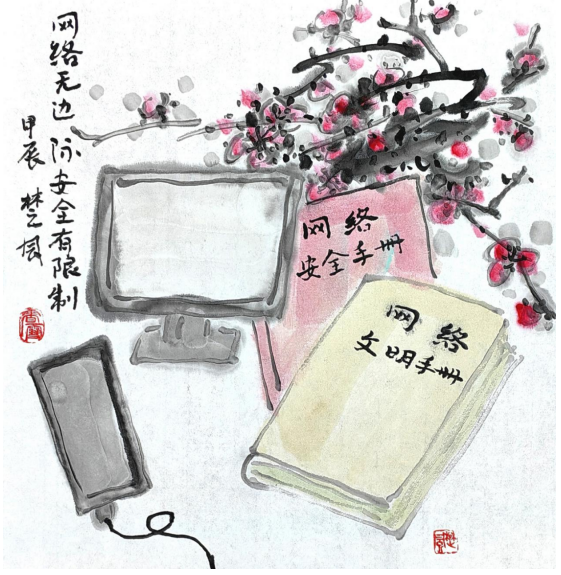 网络无边际安全有限制
甲辰 楚风
网络
安全手册
网络
文明手册